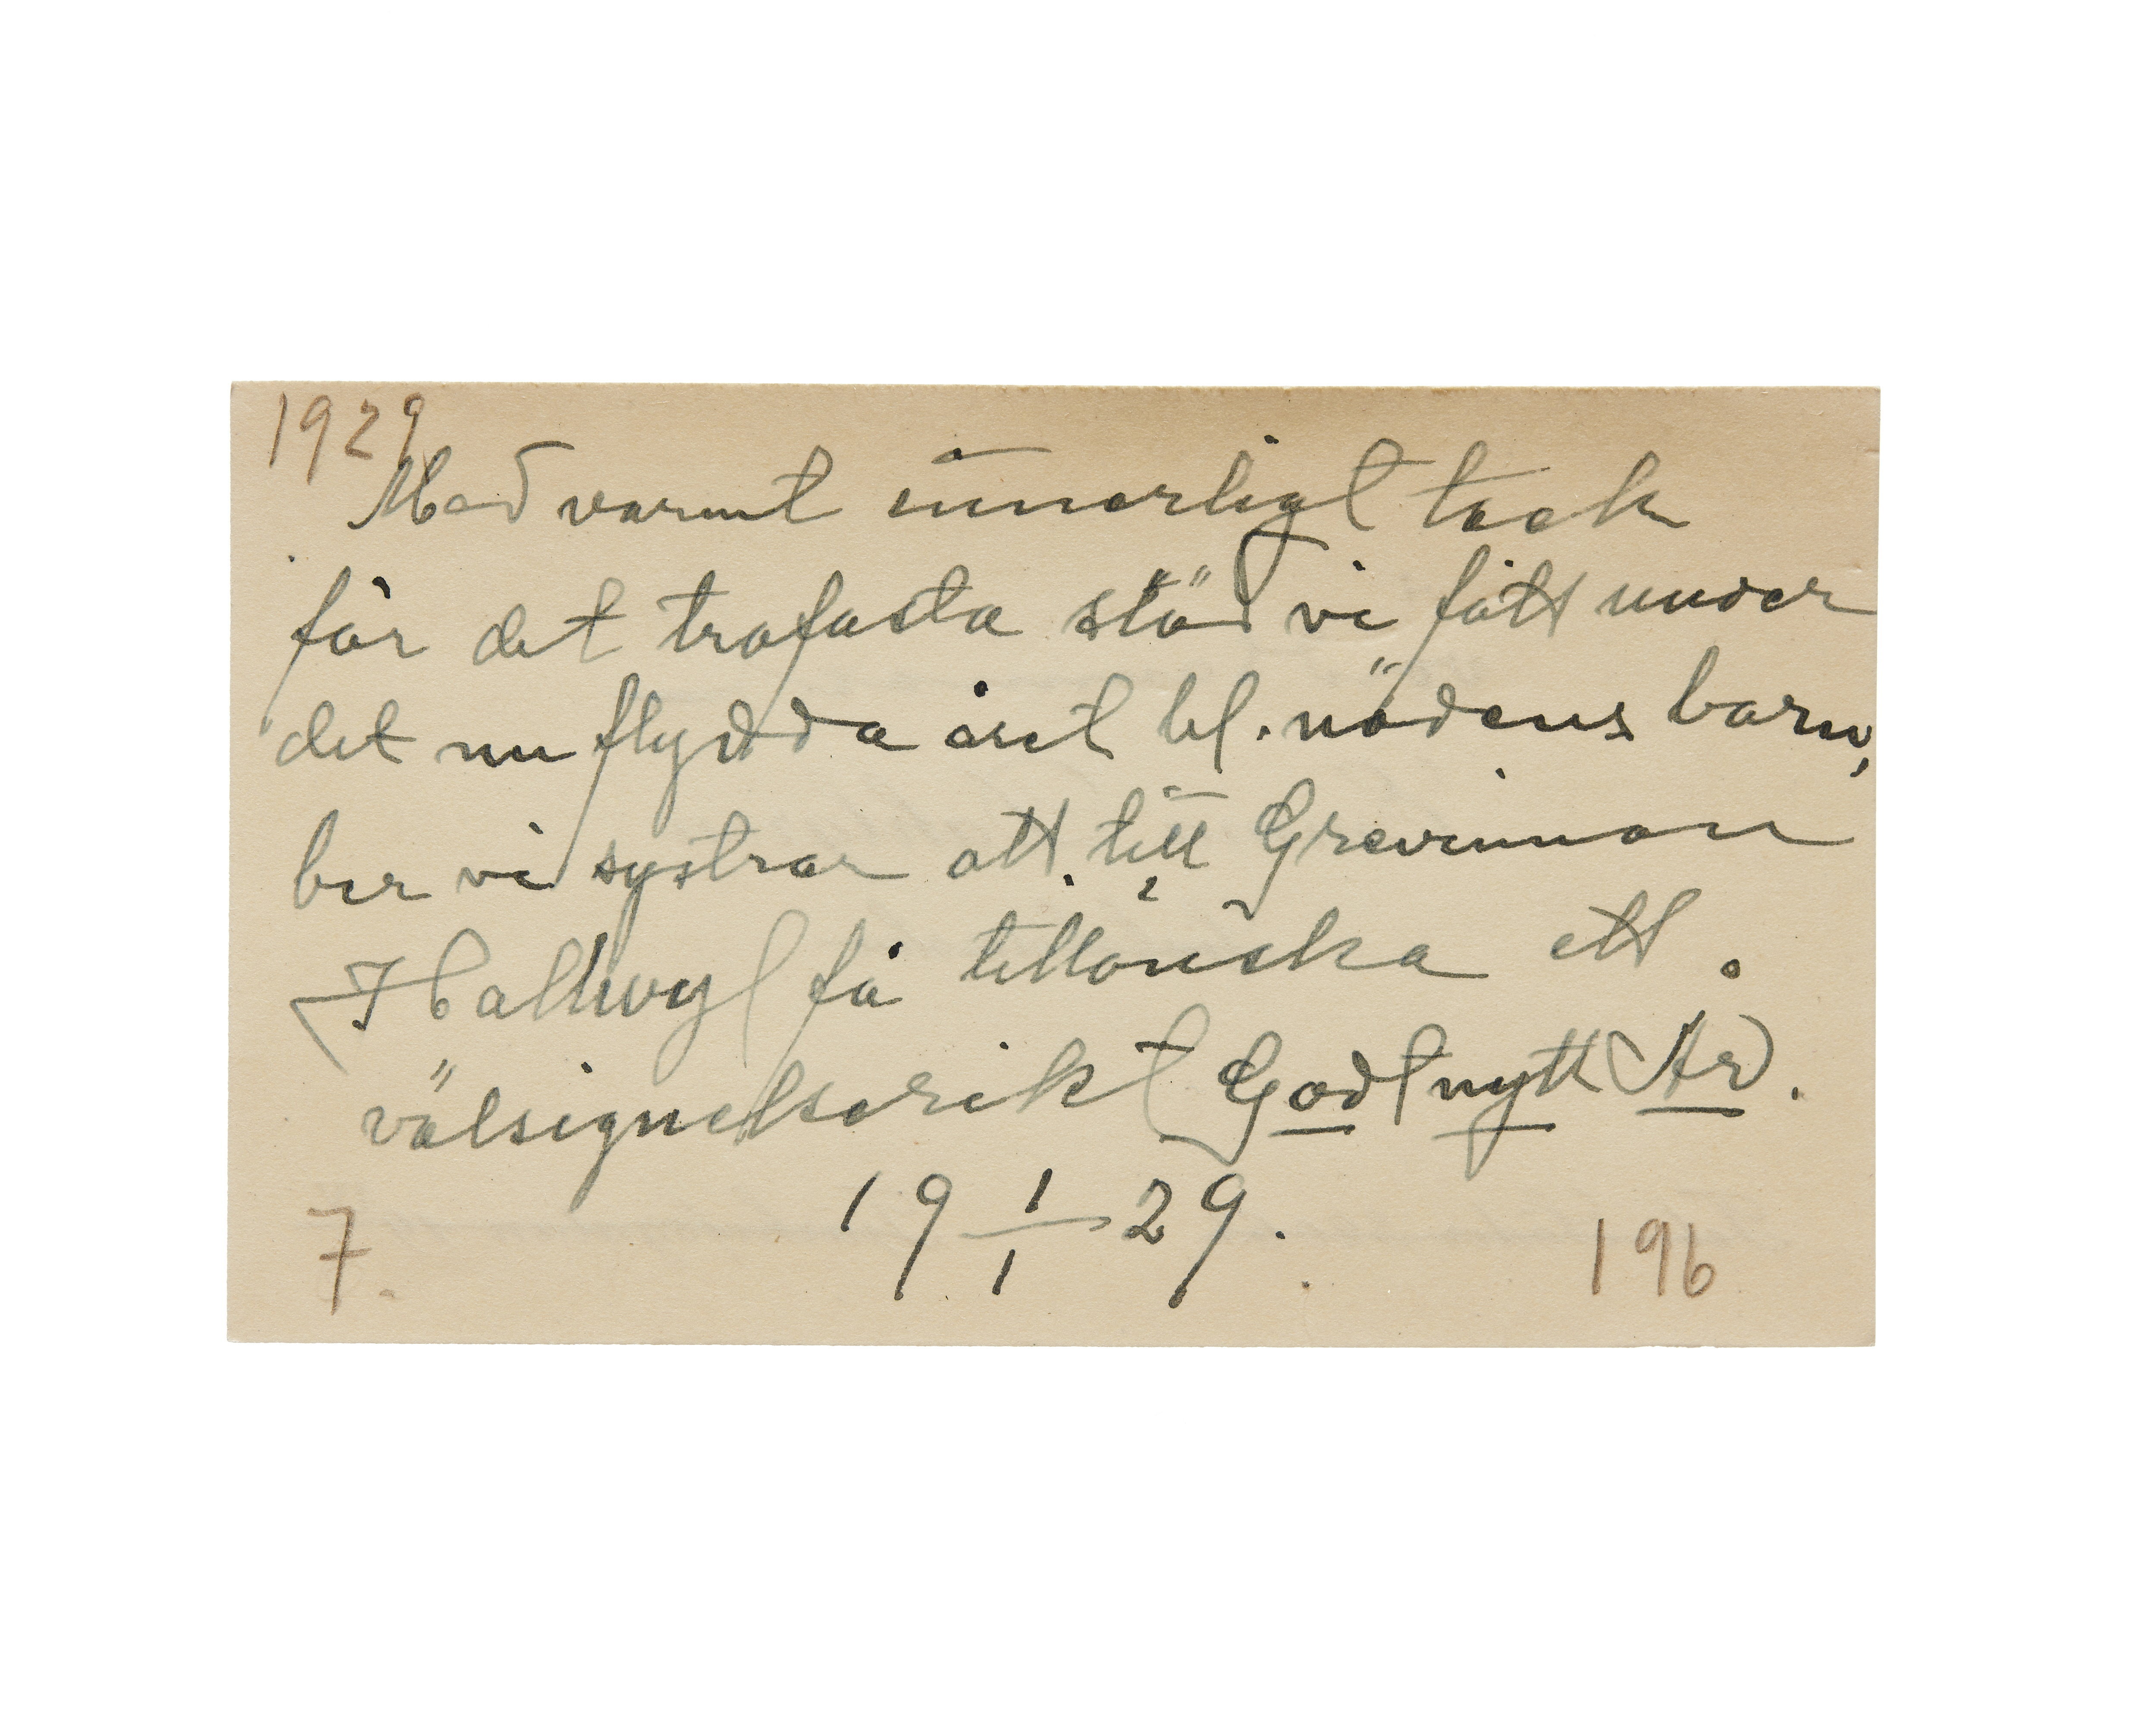 1929
Med varmt innerligt tack
för det trofasta stöd vi fått under
det nu flydda året bl. nödens barn,
ber vi systrar att till Grevinnan
Hallwyl få tillönska ett
välsignelserikt Godt nytt År.
19 1/1 29.
7. 196